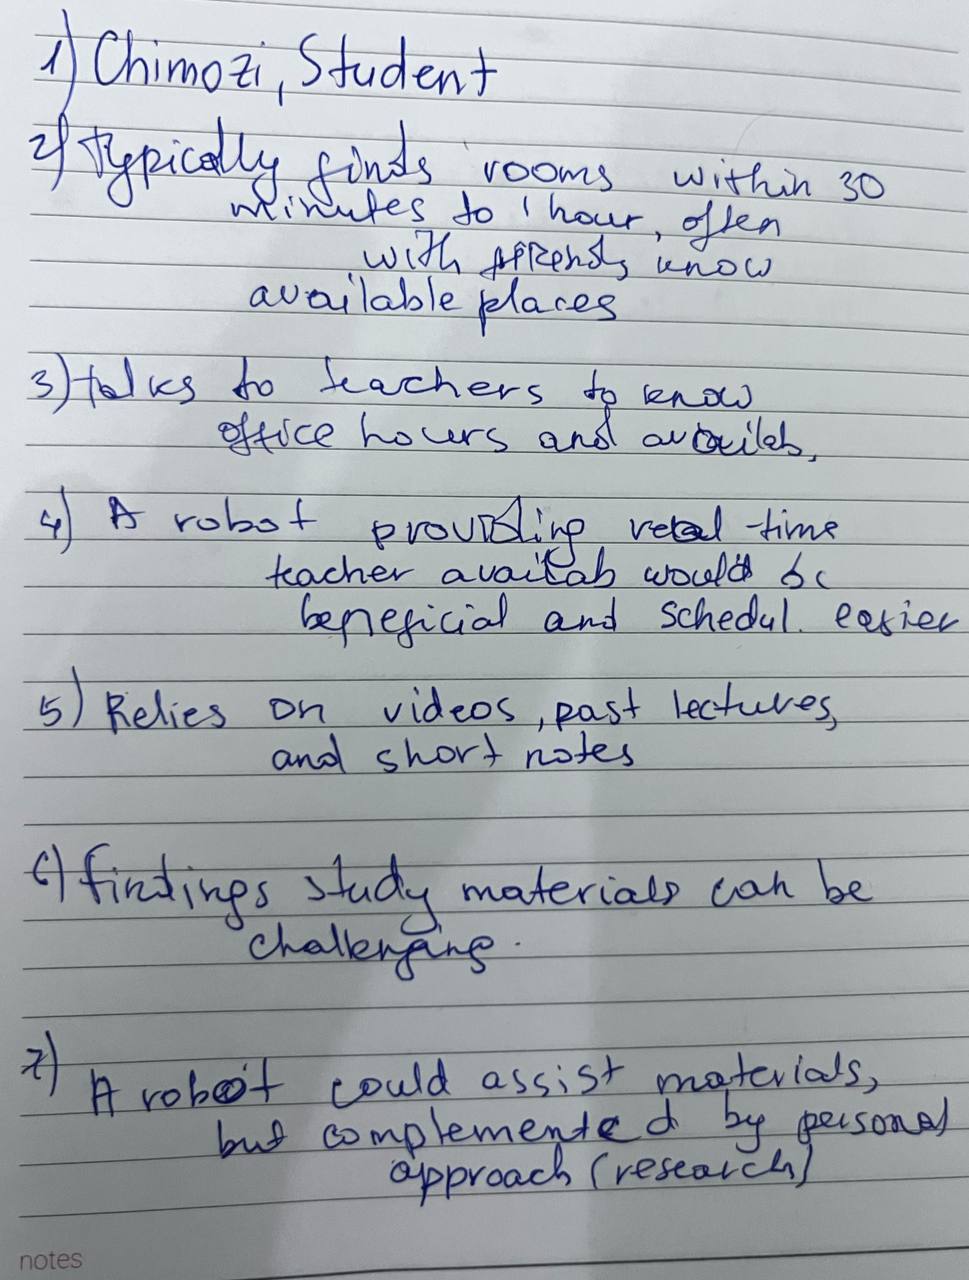 1) Chimozi, Student
2) Typically finds rooms within 30
minutes to 1 hour, often
with friends know
available places
3) talks to teachers to know
office hours and availab,
4) A robot providing real-time
teacher availab would be
beneficial and schedul. easier
5) Relies on videos, past lectures,
and short notes
6) findings study materials can be
challenging.
7) A robot could assist materials,
but complemented by personal
approach (research)
notes